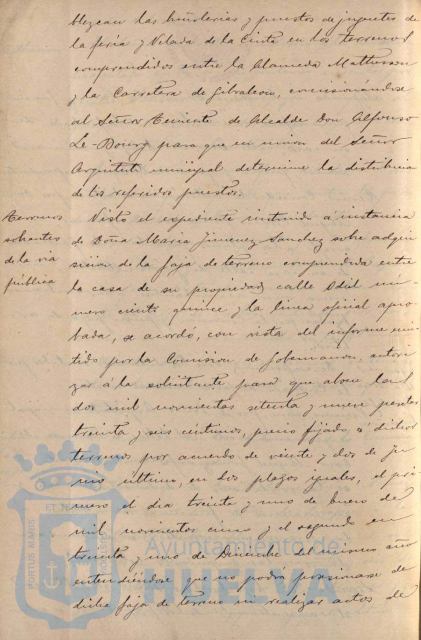 blezcan las buñolerias y puestos de juguetes de
la feria y Velada de la Cinta en los terrenos
comprendidos entre la Alameda Mathesson
y la Carretera de Gibraleon, comisionándose
al Señor Teniente de Alcalde Don Alfonso
Le-Bourg para que en union del Señor
Arquitecto municipal determine la distribucion
de los referidos puestos.
Terrenos
sobrantes
de la via
pública
Visto el expediente instruido a instancia
de Doña Maria Jimenez Sanchez sobre adqui-
sicion de la faja de terreno comprendida entre
la casa de su propiedad calle Odiel nú-
mero ciento quince y la linea oficial apro-
bada, se acordó, con vista del informe emi-
tido por la Comision de Gobernacion, autori-
zar á la solicitante para que abone las
dos mil novecientas setenta y nueve pesetas
treinta y seis centimos, precio fijado á dichos
terrenos por acuerdo de veinte y dos de Ju-
nio último, en dos plazos iguales, el pri-
mero el dia treinta y uno de Enero de
mil novecientos cinco y el segundo en
treinta y uno de Diciembre del mismo año
entendiéndose que no podrá posesionarse de
dicha faja de terreno ni realizar actos de
PORTUS MARIS
ET TERRAE
Ayuntamiento de
HUELVA